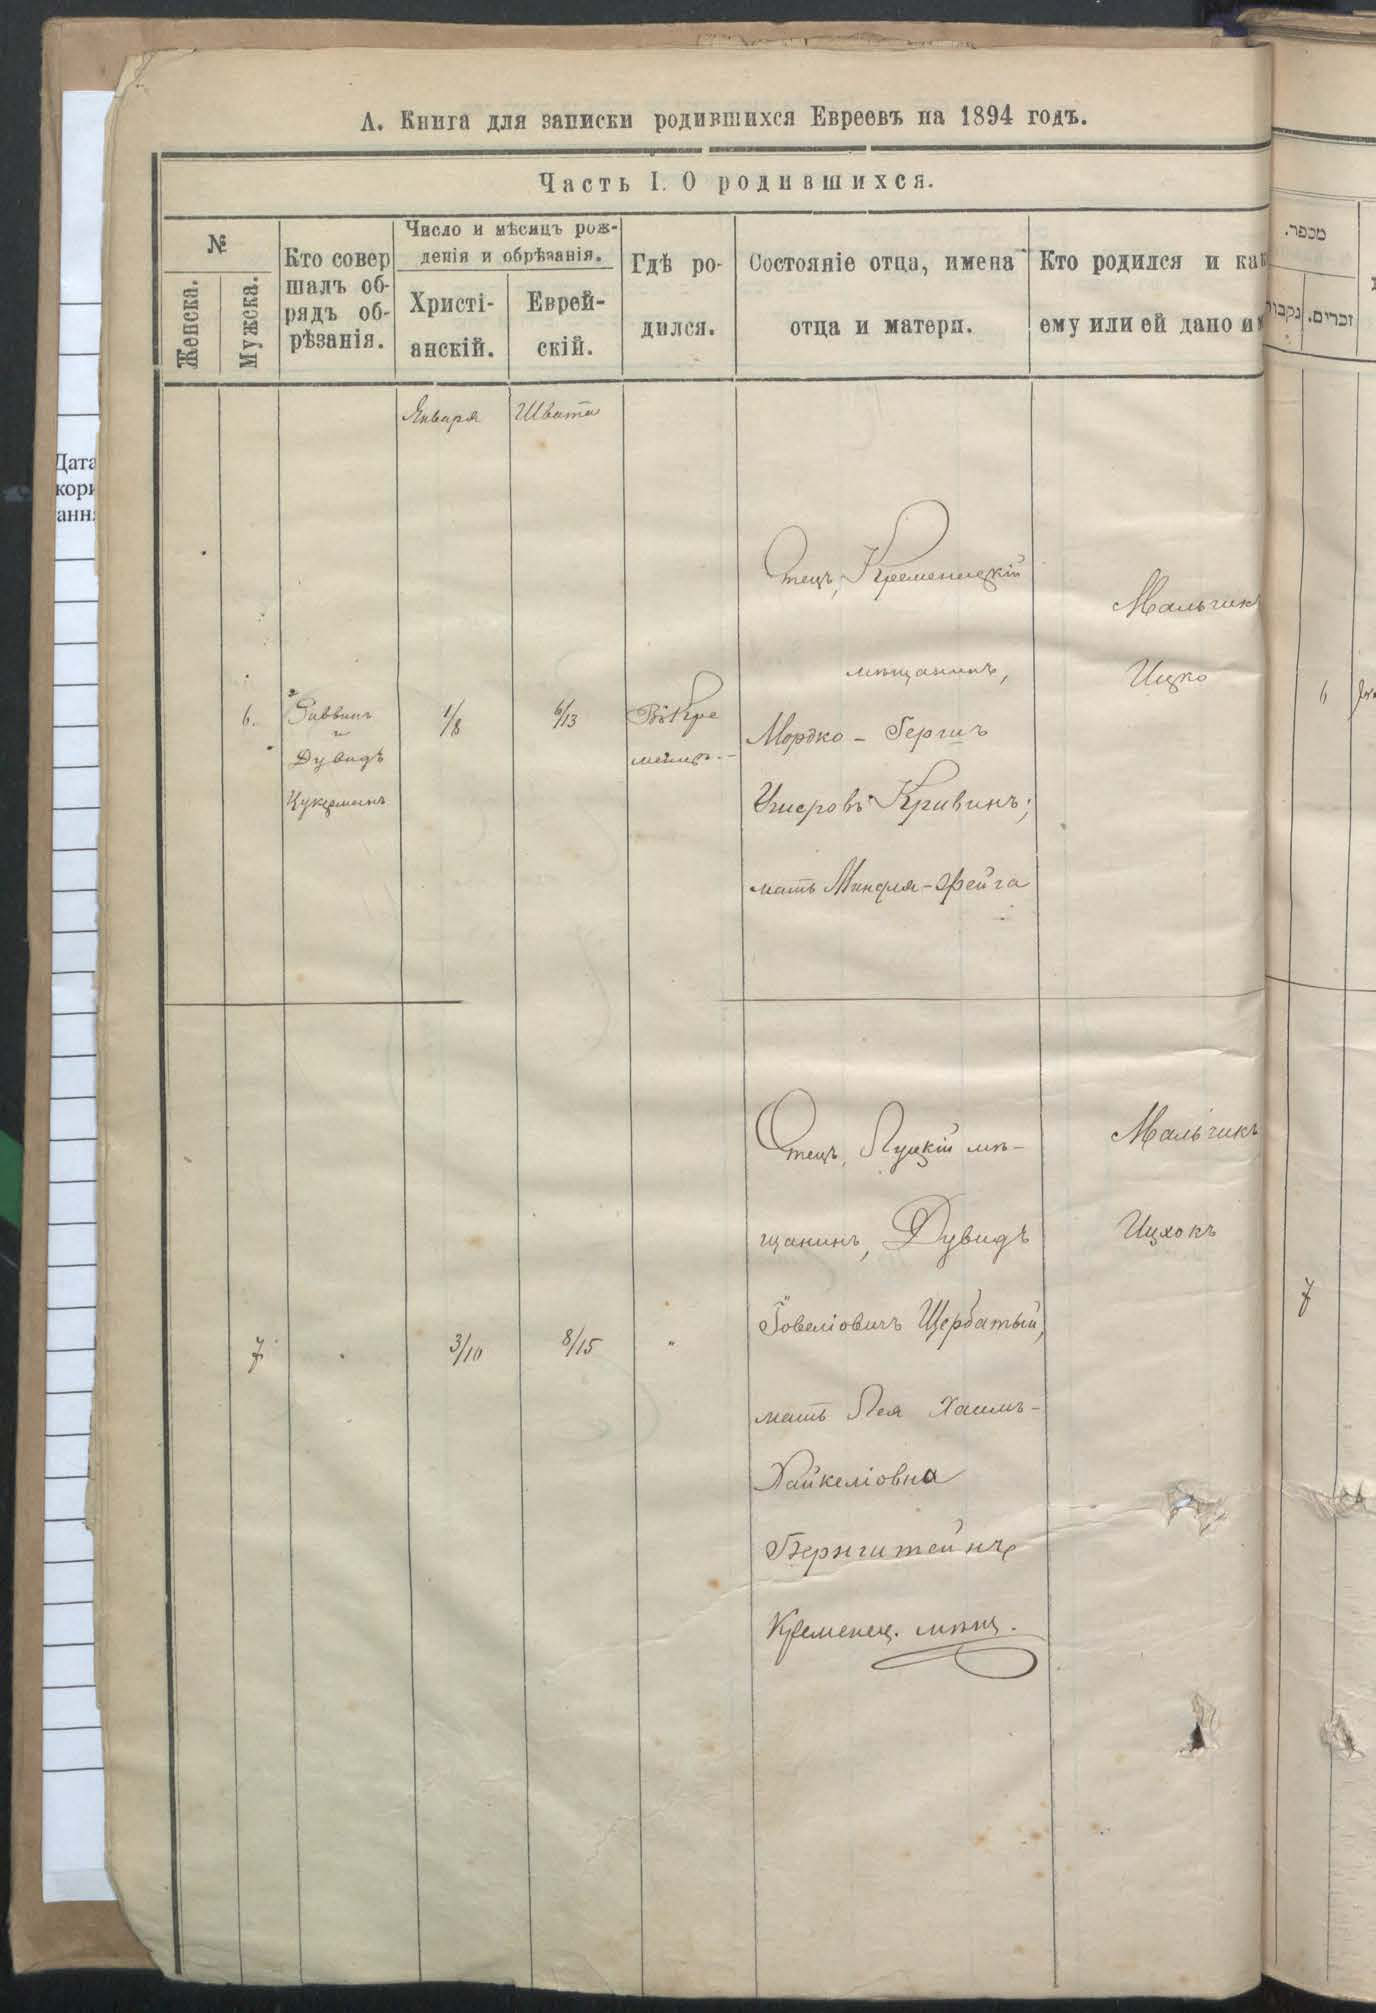 А. Книга для записки родившихся Евреевъ на 1894 годъ.
Часть I. О родившихся.
№
Женска.
Мужска.
Кто совер
шалъ об-
рядъ об-
рѣзанія.
Число и мѣсяцъ рож-
денія и обрѣзанія.
Христі-
анскій.
Еврей-
скій.
Гдѣ ро-
дился.
Состояніе отца, имена
отца и матери.
Кто родился и как
ему или ей дано и
Января
Швата
6.
Раввинъ
и
Дувидъ
Цукерманъ
1/8
6/13
Въ Кре
менцѣ.
Отецъ, Кременецкій
мѣщанинъ,
Мордко - Бергиъ
Кривинъ;
мать Миндля - Фейга
Мальчикъ
Ицко
7
3/10
8/15
"
Отецъ, Луцкій мѣ-
щанинъ, Дувидъ
Іовеліовичъ Щербатый,
мать Лея Хаимъ-
Хайкеліовна
Бернштейнъ
Кременец. мѣщ.
Мальчикъ
Ицхокъ
מספר.
נקבות
זכרים.
6
7
Дата
кори
анн